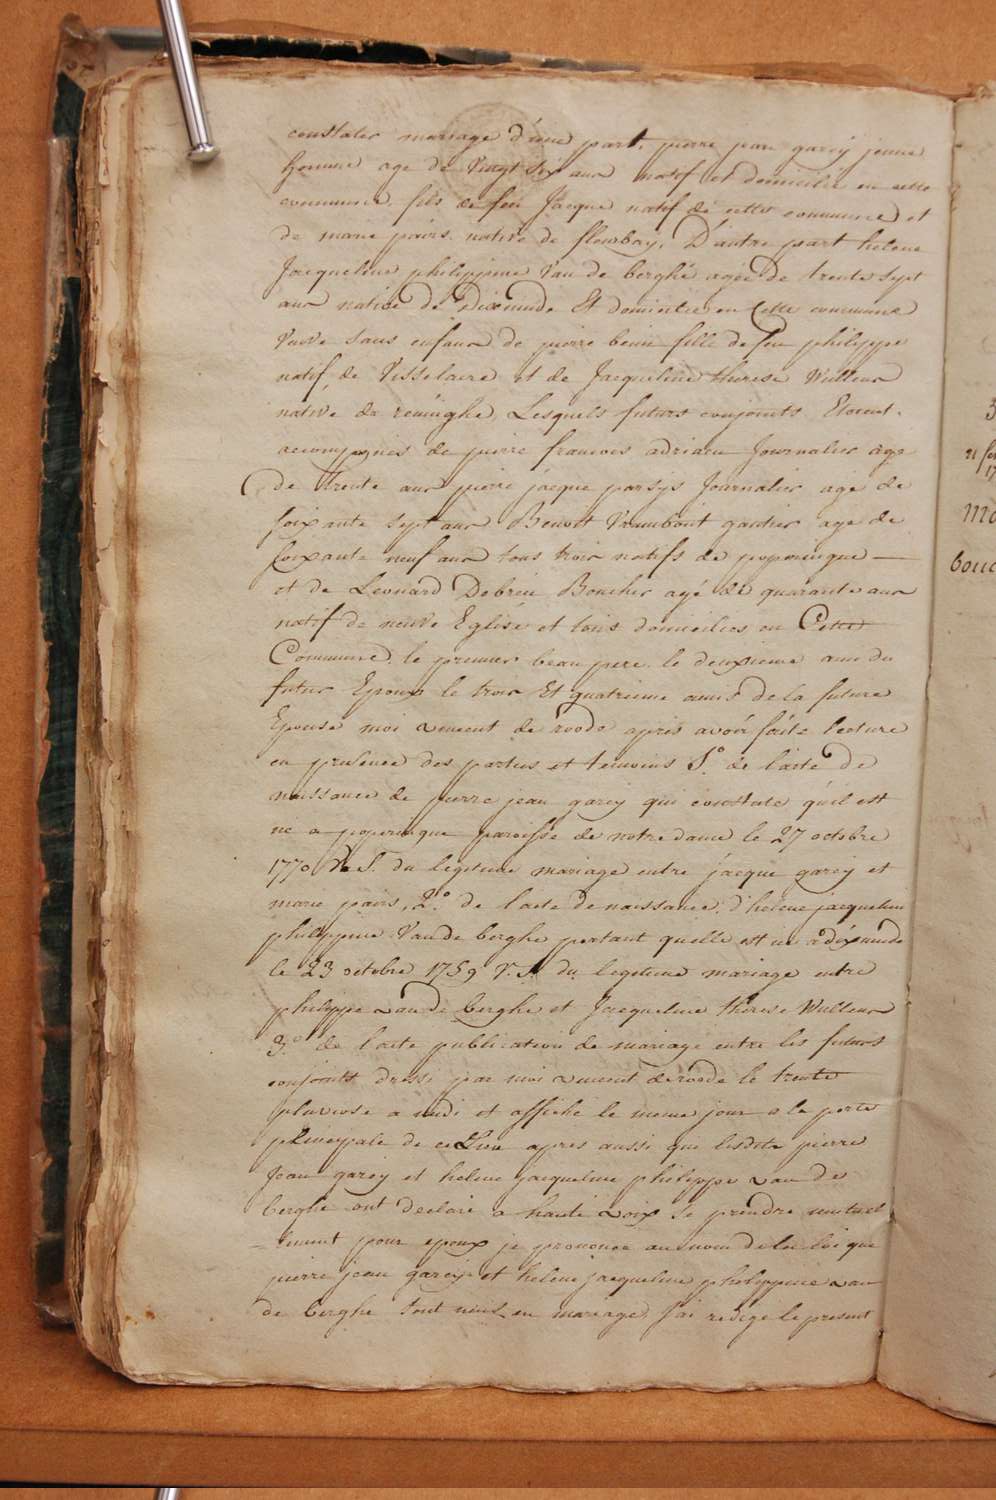 constater mariage d'une part, pierre jean garcy jeune
homme age de Vingt Six ans natif et domicilie en cette
commune, fils de feu Jacque natif de cette commune et
de marie pairs native de fleurbay, D'autre part helene
Jacqueline philippine Van de berghe agee de trente sept
ans native de Dixmude Et domiciliee en Cette commune
Veuve sans enfans de pierre benin fille de feu philippe
natif de Visselaire et de Jacqueline therese Wulleur
native de reninghe, Lesquels futurs conjoints Etoient
accompagnés de pierre francois adriaen Journalier age
de trente ans pierre jacque parsys Journalier age de
soixante sept ans Benoit Vrambout gantier age de
Soixante neuf ans tous trois natifs de poperingue —
et de Leonard Debreu Boucher agé de quarante ans
natif de neuve Eglise et tous domicilies en Cette
Commune, le premier beau pere, le deuxieme ami du
futur Epoux le trois Et quatrieme amis de la future
Epouse moi vincent de roode apres avoir faite lecture
en presence des parties et temoins 1.º de l'acte de
naissance de pierre jean garcy qui constate qu'il est
né a poperingue paroisse de notre dame le 27 octobre
1770 V. S. du legitime mariage entre jacque garcy et
marie pairs, 2.º de l'acte de naissance d'helene jacqueline
philippine Van de berghe portant quelle est né a dixmude
le 23 octobre 1759 V. S. du legitime mariage entre
philippe van de berghe et Jacqueline therese Wulleur
3.º de l'acte publication de mariage entre les futurs
conjoints dressé par moi vincent de roode le trente
pluviose a midi et affiché le meme jour a la porte
principale de ce Lieu apres aussi que lesdits pierre
Jean garcy et helene jacqueline philippe van de
berghe ont declaré a haute voix se prendre mutuel
-lement pour epoux je prononce au nom de la loi que
pierre jean garcy et helene jacqueline philippine van
de berghe sont unis en mariage, J'ai redige le present
3
21
17
Ma
bouc